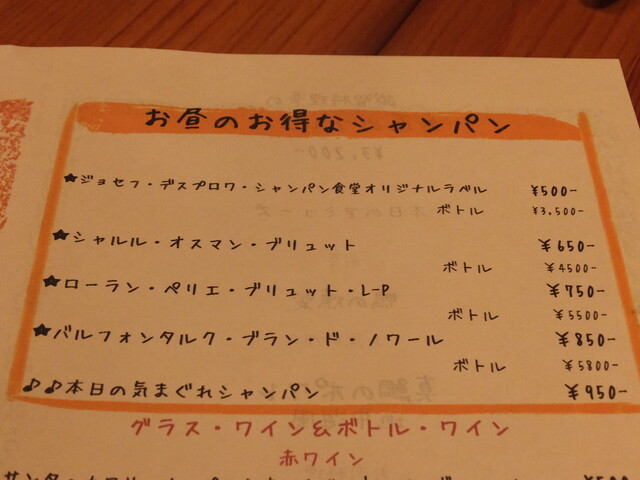 お昼のお得なシャンパン
★ジョセフ・デスプロワ・シャンパン食堂オリジナルラベル ¥500-
ボトル ¥3,500-
★シャルル・オスマン・ブリュット ¥650-
ボトル ¥4500-
★ローラン・ペリエ・ブリュット・L-P ¥750-
ボトル ¥5500-
★バルフォンタルク・ブラン・ド・ノワール ¥850-
ボトル ¥5800-
♪♪本日の気まぐれシャンパン ¥950-
グラス・ワイン&ボトル・ワイン
赤ワイン